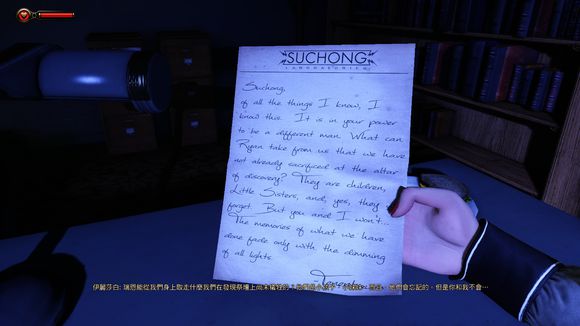 SUCHONG
LABORATORIES
Suchong,
of all the things I know, I
know this. It is in your power
to be a different man. What can
Ryan take from us that we have
not already sacrificed at the altar
of discovery? They are children,
Little Sisters, and, yes, they
forget. But you and I won't...
The memories of what we have
done fade only with the dimming
of all lights.
伊麗莎白: 瑞恩能從我們身上取走什麼我們在發現祭壇上尚未犧牲的 她們會忘記的。但是你和我不會…